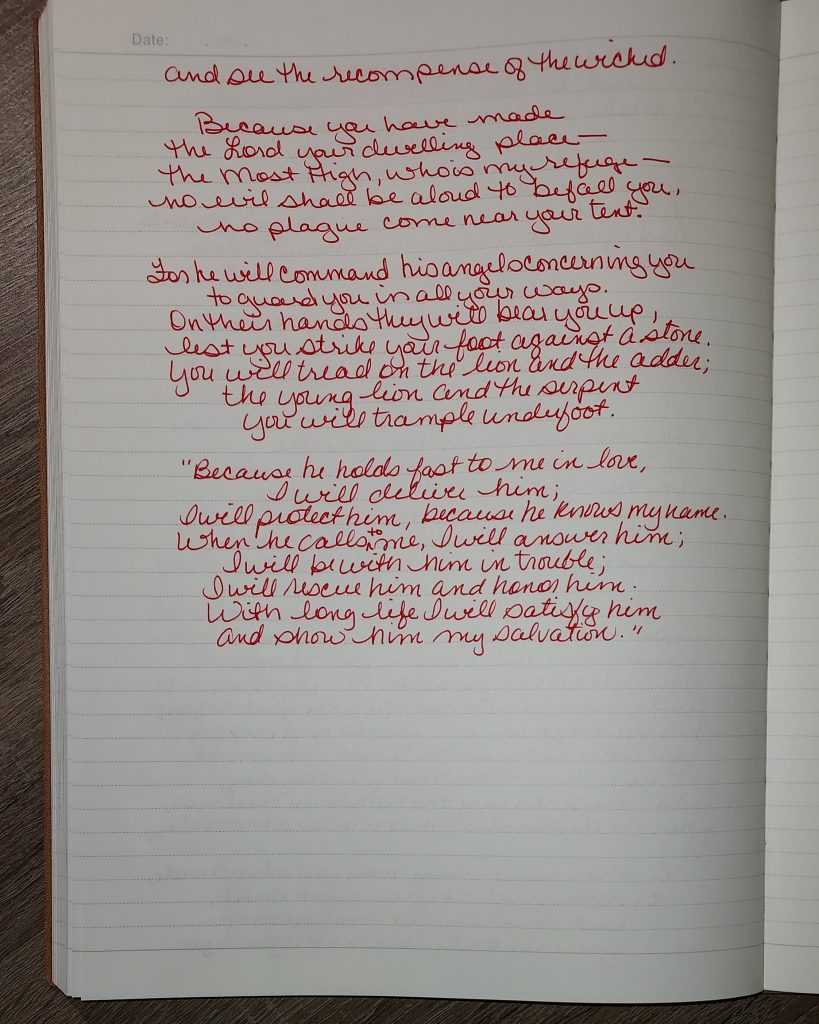 Date:
and see the recompense of the wicked.
Because you have made
the Lord your dwelling place—
the Most High, who is my refuge—
no evil shall be aloud to befall you,
no plague come near your tent.
For he will command his angels concerning you
to guard you in all your ways.
On their hands they will bear you up,
lest you strike your foot against a stone.
You will tread on the lion and the adder;
the young lion and the serpent
you will trample underfoot.
"Because he holds fast to me in love,
I will deliver him;
I will protect him, because he knows my name.
When he calls to me, I will answer him;
I will be with him in trouble;
I will rescue him and honor him.
With long life I will satisfy him
and show him my salvation."